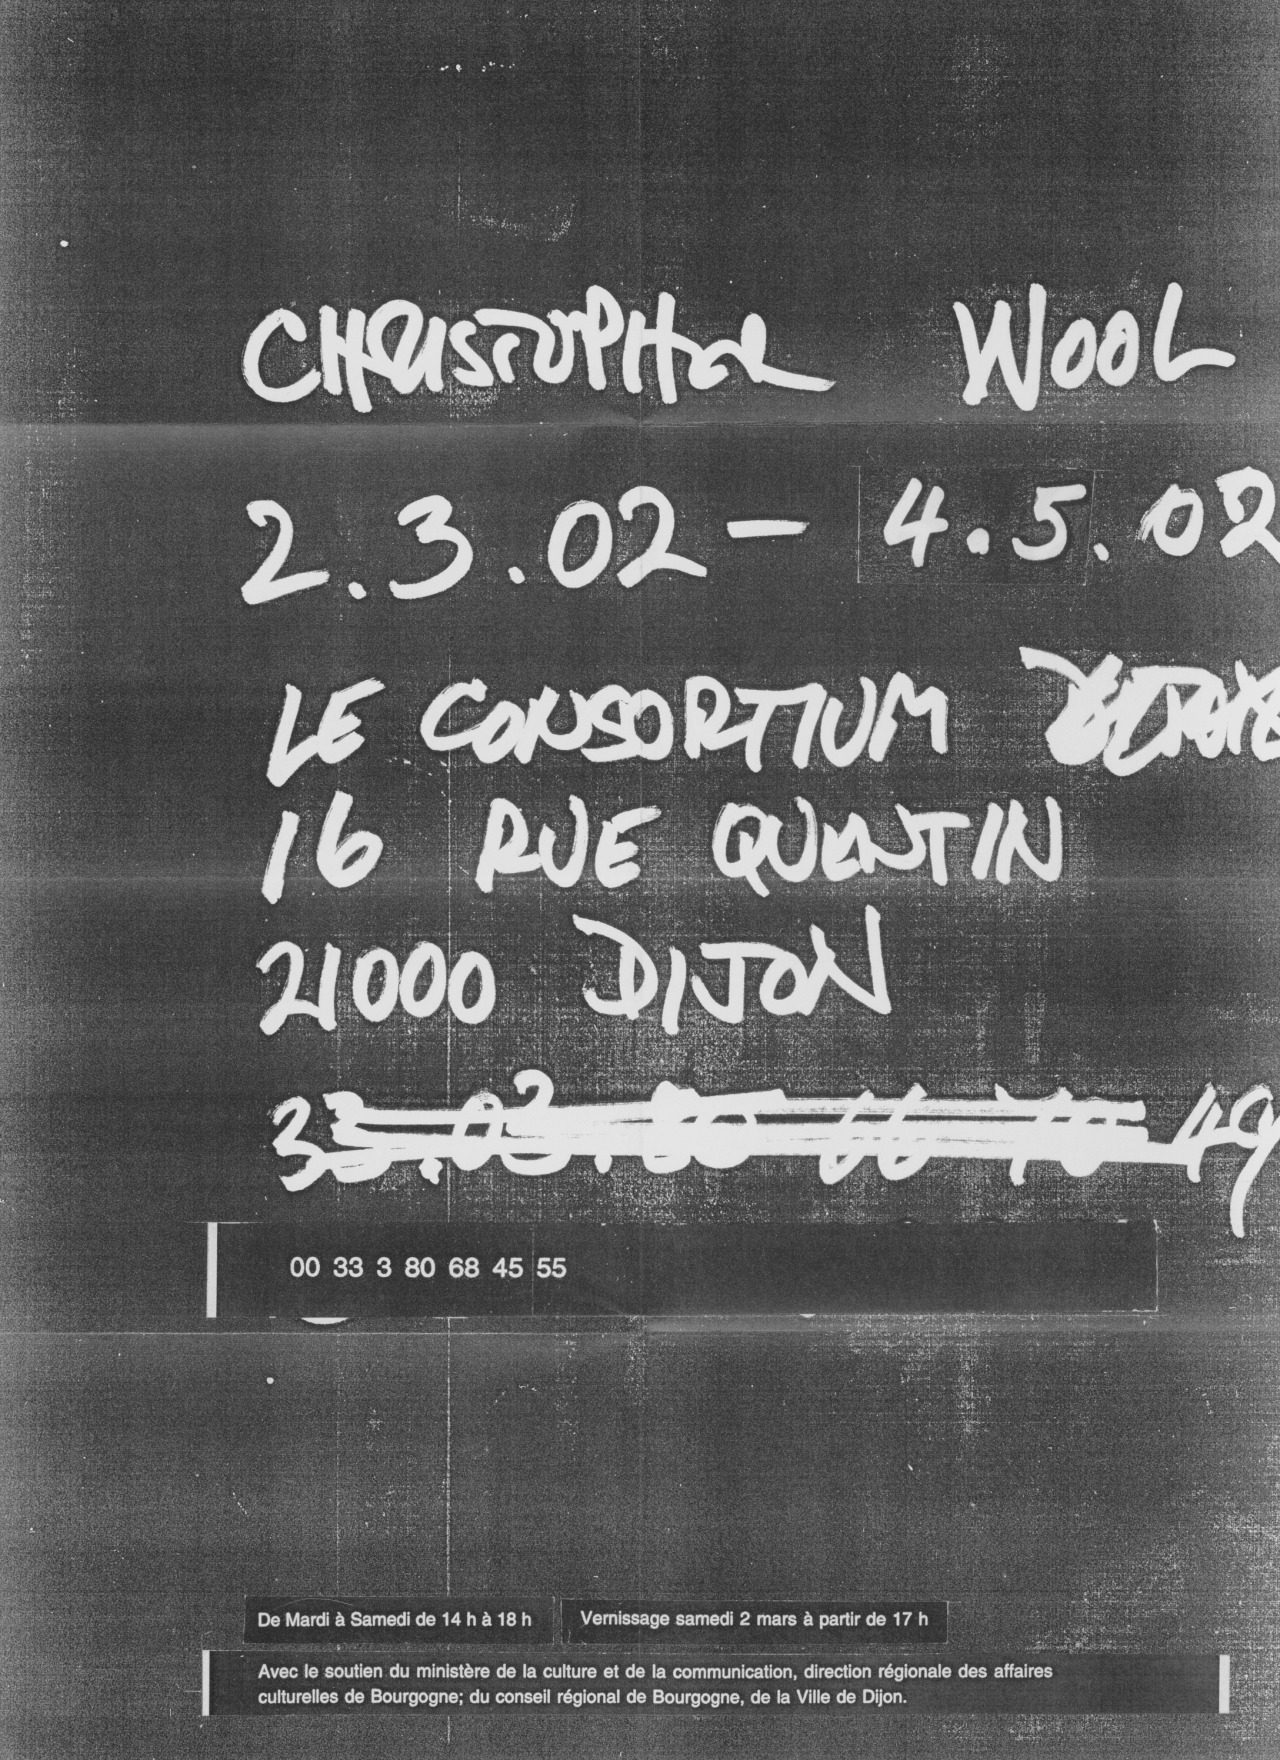 CHRISTOPHER WOOL
2.3.02 - 4.5.02
LE CONSORTIUM
16 RUE QUENTIN
21000 DIJON
33.03.80 66 70 49
00 33 3 80 68 45 55
De Mardi à Samedi de 14 h à 18 h
Vernissage samedi 2 mars à partir de 17 h
Avec le soutien du ministère de la culture et de la communication, direction régionale des affaires
culturelles de Bourgogne; du conseil régional de Bourgogne, de la Ville de Dijon.